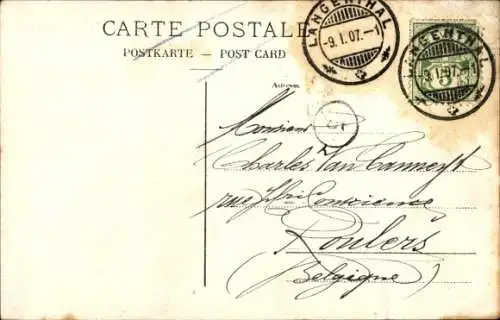 CARTE POSTALE
POSTKARTE — POST CARD
LANGENTHAL
-9.I.07.-1
LANGENTHAL
-9.I.07.-1
5
Adresse
Monsieur
Charles Van Canneyt
rue Conscience
Roulers
(Belgique)